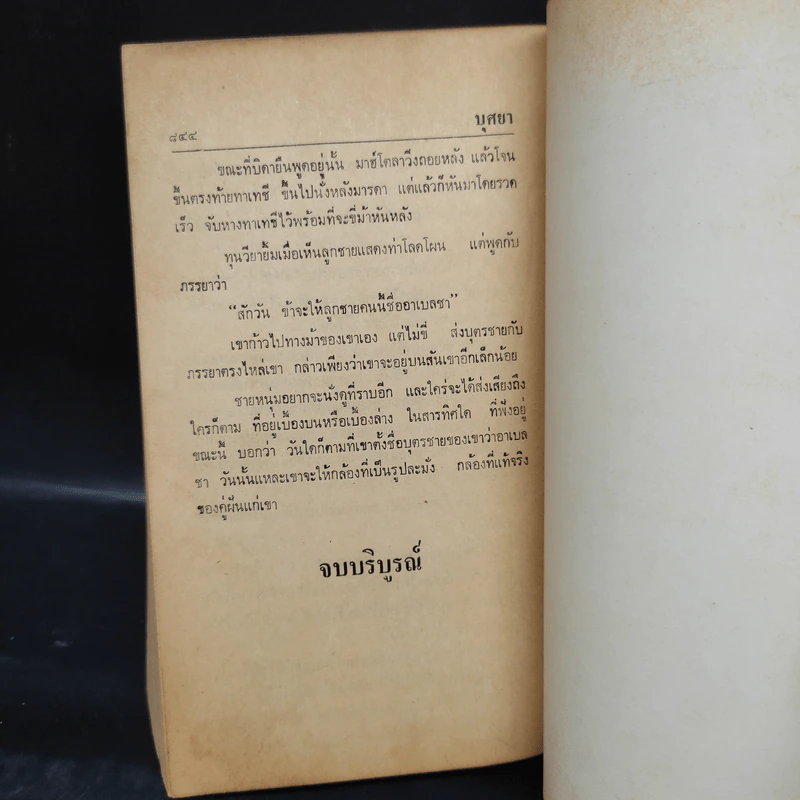 ๘๔๔
บุศยา
ขณะที่บิดายืนพูดอยู่นั้น มาฮ์โตลาวิ่งถอยหลัง แล้วโจน
ขึ้นตรงท้ายทาเทชี ขึ้นไปนั่งหลังมารดา แต่แล้วก็หันมาโดยรวด
เร็ว จับหางทาเทชีไว้พร้อมที่จะขี่ม้าหันหลัง
ทุนวียายิ้มเมื่อเห็นลูกชายแสดงท่าโลดโผน แต่พูดกับ
ภรรยาว่า
“สักวัน ข้าจะให้ลูกชายคนนี้ชื่ออาเบลชา”
เขาก้าวไปทางม้าของเขาเอง แต่ไม่ขี่ ส่งบุตรชายกับ
ภรรยาตรงไหล่เขา กล่าวเพียงว่าเขาจะอยู่บนสันเขาอีกเล็กน้อย
ชายหนุ่มอยากจะนั่งดูที่ราบอีก และใคร่จะได้ส่งเสียงถึง
ใครก็ตาม ที่อยู่เบื้องบนหรือเบื้องล่าง ในสารทิศใด ที่ฟังอยู่
ขณะนี้ บอกว่า วันใดก็ตามที่เขาตั้งชื่อบุตรชายของเขาว่าอาเบล
ชา วันนั้นแหละเขาจะให้กล้องที่เป็นรูปละมั่ง กล้องที่แท้จริง
ของคู่ฝันแก่เขา
จบบริบูรณ์